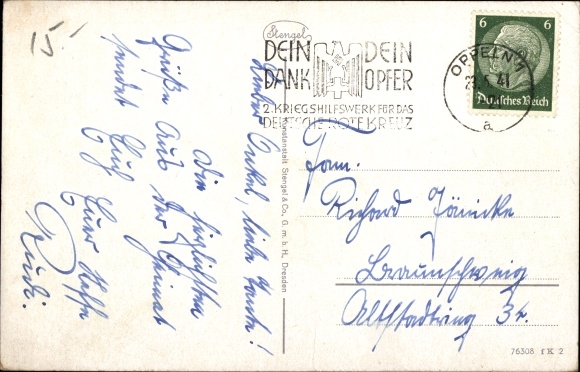 15.-
Lieber Onkel, liebe Tante!
Die herzlichsten
Grüße aus der Heimat
sendet Euch Euer Neffe
Rudi.
Kunstanstalt Stengel & Co., G. m. b. H., Dresden
Stengel
DEIN DANK DEIN OPFER
2. KRIEGSHILFSWERK FÜR DAS
DEUTSCHE ROTE KREUZ
OPPELN 1
41
a
6 6
Deutsches Reich
Fam.
Richard Jänicke
Braunschweig
Altstadtring 34.
76308 f K 2